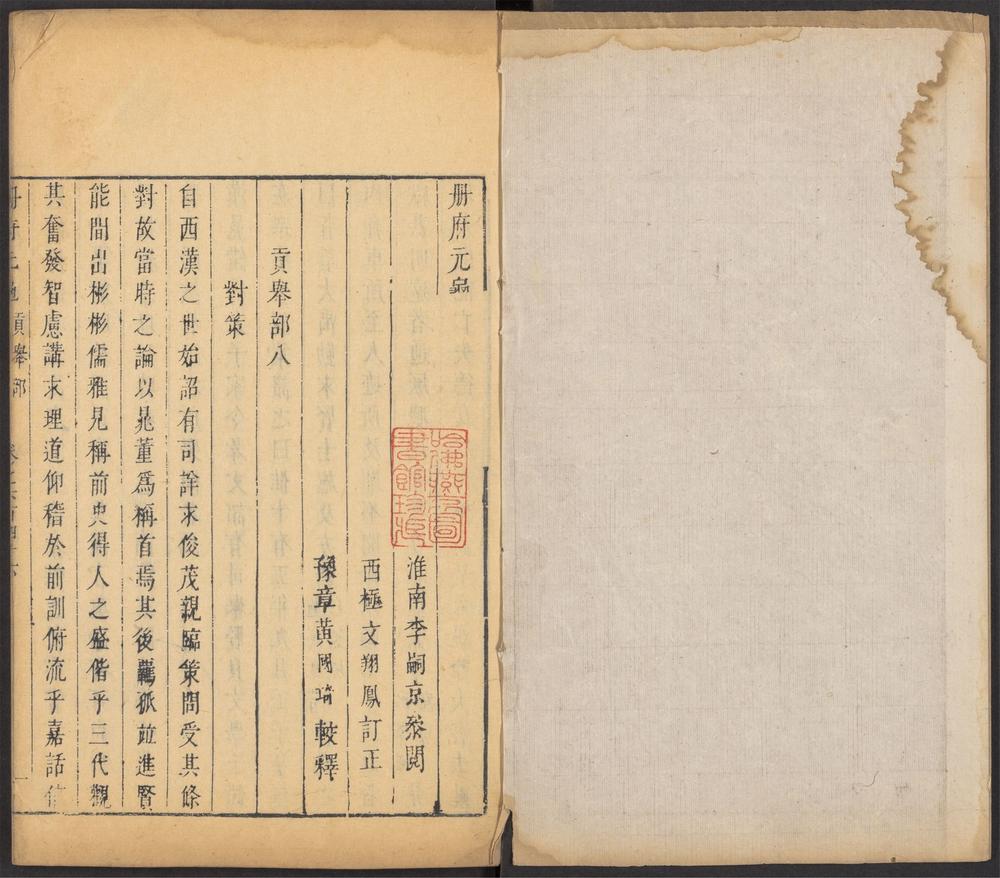 册府元龜
哈佛燕京圖
書館珍藏
淮南李嗣京叅閱
西極文翔鳳訂正
豫章黃國琦較釋
貢舉部八
對策
自西漢之世始詔有司詳求俊茂親臨策問受其條
對故當時之論以晁董爲稱首焉其後羈孤並進賢
能間出彬彬儒雅見稱前史得人之盛偕乎三代觀
其奮發智慮講求理道仰稽於前訓俯流乎嘉話
册府元龜 貢舉部 卷之六百四十六 一